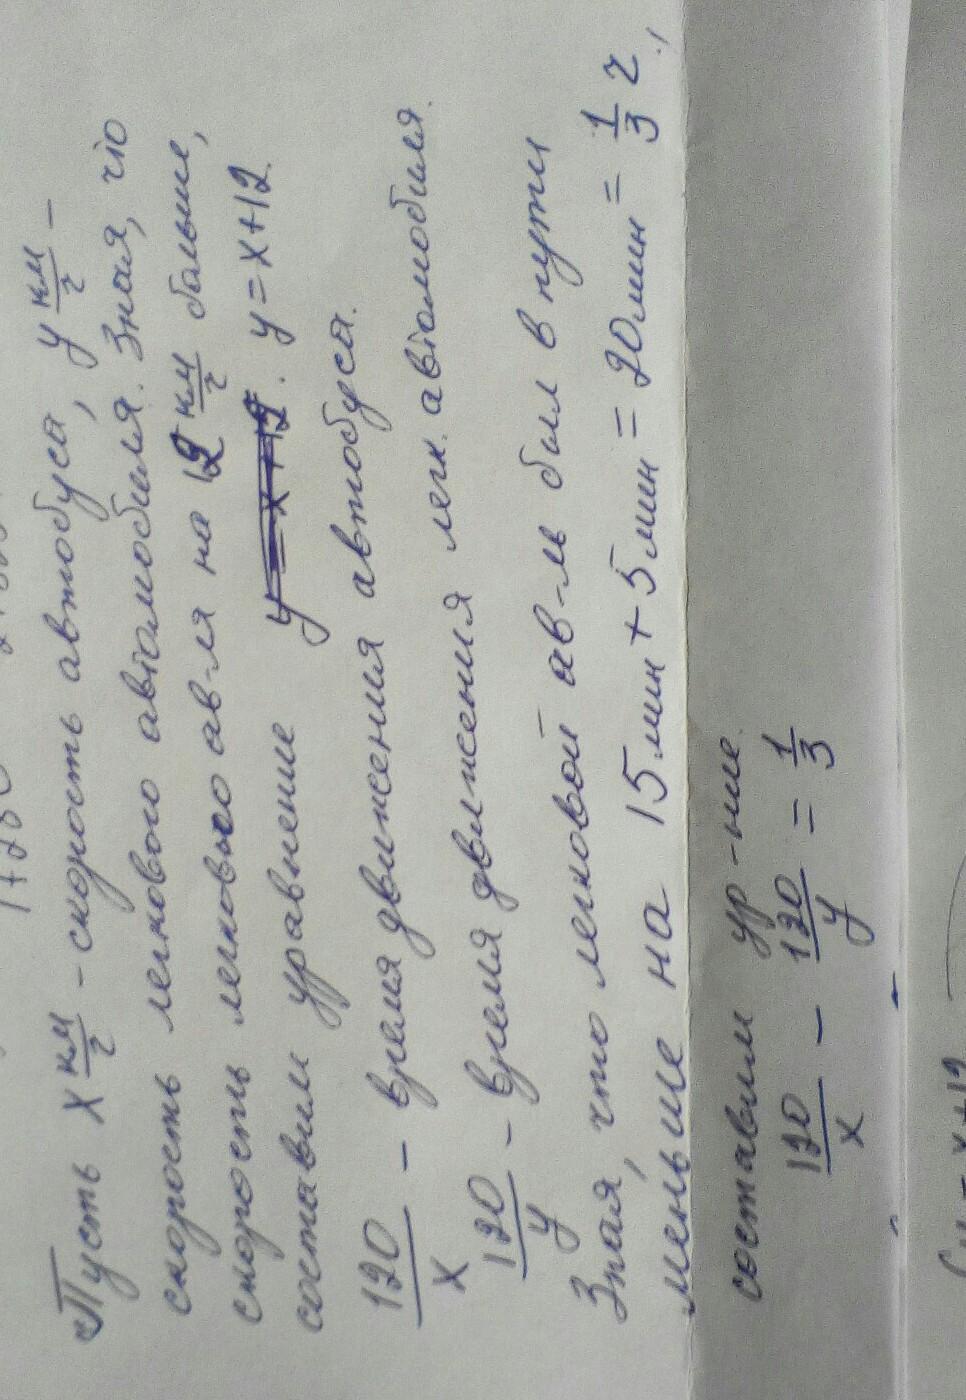 Пусть x км/ч - скорость автобуса, y км/ч -
скорость легкового автомобиля. Зная, что
скорость легкового ав-ля на 12 км/ч больше,
составим уравнение y = x + 12. y = x+12.
120/x - время движения автобуса.
120/y - время движения легк. автомобиля.
Зная, что легковой ав-ль был в пути
меньше на 15 мин + 5 мин = 20 мин = 1/3 ч.,
составим ур-ние.
120/x - 120/y = 1/3